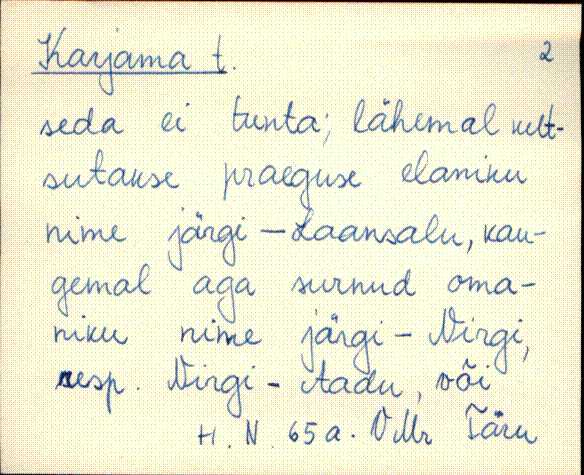 Karjama t. 2
seda ei tunta; lähemal kut-
sutakse praeguse elaniku
nime järgi – Laansalu, kau-
gemal aga surnud oma-
niku nime järgi – Nirgi,
resp. Nirgi – Aadu, või
H. N. 65 a. VMr Täru